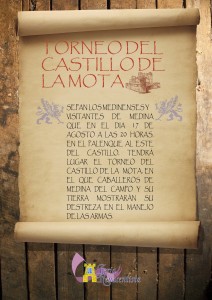 TORNEO DEL
CASTILLO DE
LA MOTA
SEPAN LOS MEDINENSES Y
VISITANTES DE MEDINA
QUE EN EL DIA 17 DE
AGOSTO A LAS 20 HORAS,
EN EL PALENQUE AL ESTE
DEL CASTILLO, TENDRÁ
LUGAR EL TORNEO DEL
CASTILLO DE LA MOTA EN
EL QUE CABALLEROS DE
MEDINA DEL CAMPO Y SU
TIERRA MOSTRARAN SU
DESTREZA EN EL MANEJO
DE LAS ARMAS.